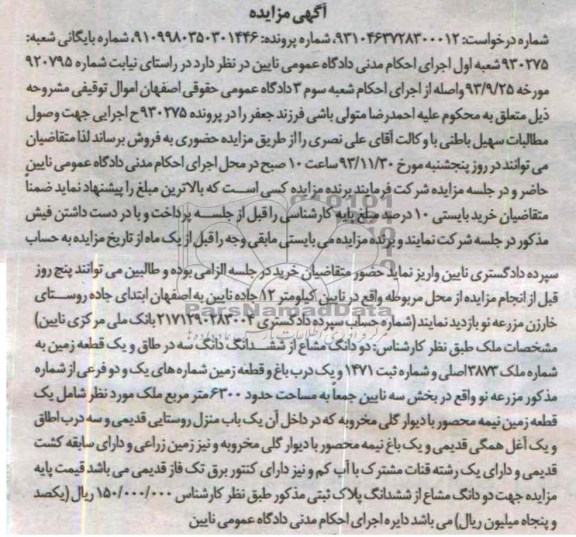 آگهی مزایده
شماره درخواست: ۹۳۱۰۴۶۳۷۲۸۳۰۰۰۱۲، شماره پرونده: ۹۱۰۹۹۸۰۳۵۰۳۰۱۴۴۶، شماره بایگانی شعبه:
۹۳۰۲۷۵ شعبه اول اجرای احکام مدنی دادگاه عمومی نایین در نظر دارد در راستای نیابت شماره ۹۲۰۷۹۵
مورخه ۹۳/۹/۲۵ واصله از اجرای احکام شعبه سوم ۳ دادگاه عمومی حقوقی اصفهان اموال توقیفی مشروحه
ذیل متعلق به محکوم علیه احمدرضا متولی باشی فرزند جعفر را در پرونده ۹۳۰۲۷۵ ح اجرایی جهت وصول
مطالبات سهیل باطنی با وکالت آقای علی نصری را از طریق مزایده حضوری به فروش برساند لذا متقاضیان
می توانند در روز پنجشنبه مورخ ۹۳/۱۱/۳۰ ساعت ۱۰ صبح در محل اجرای احکام مدنی دادگاه عمومی نایین
حاضر و در جلسه مزایده شرکت فرمایند برنده مزایده کسی است که بالاترین مبلغ را پیشنهاد نماید ضمناً
متقاضیان خرید بایستی ۱۰ درصد مبلغ پایه کارشناسی را قبل از جلسه پرداخت و با در دست داشتن فیش
مذکور در جلسه شرکت نمایند و برنده مزایده می بایستی مابقی وجه را قبل از یک ماه از تاریخ مزایده به حساب
سپرده دادگستری نایین واریز نماید حضور متقاضیان خرید در جلسه الزامی بوده و طالبین می توانند پنج روز
قبل از انجام مزایده از محل مربوطه واقع در نایین کیلومتر ۱۲ جاده نایین به اصفهان ابتدای جاده روستای
خارزن مزرعه نو بازدید نمایند (شماره حساب سپرده دادگستری ۲۱۷۱۲۹۰۲۸۳۰۰۴ بانک ملی مرکزی نایین)
مشخصات ملک طبق نظر کارشناس: دو دانگ مشاع از ششدانگ دانگ سه در طاق و یک قطعه زمین به
شماره ملک ۳۸۷۳ اصلی و شماره ثبت ۱۴۷۱ و یک درب باغ و قطعه زمین شماره های یک و دو فرعی از شماره
مذکور مزرعه نو واقع در بخش سه نایین جمعاً به مساحت حدود ۶۳۰۰ متر مربع ملک مورد نظر شامل یک
قطعه زمین نیمه محصور با دیوار گلی مخروبه که در داخل آن یک باب منزل روستایی قدیمی و سه درب اطاق
و یک آغل همگی قدیمی و یک باغ نیمه محصور با دیوار گلی مخروبه و نیز زمین زراعی و دارای سابقه کشت
قدیمی و دارای یک رشته قنات مشترک با آب کم و نیز دارای کنتور برق تک فاز قدیمی می باشد قیمت پایه
مزایده جهت دو دانگ مشاع از ششدانگ پلاک ثبتی مذکور طبق نظر کارشناس ۱۵۰/۰۰۰/۰۰۰ ریال (یکصد
و پنجاه میلیون ریال) می باشد دایره اجرای احکام مدنی دادگاه عمومی نایین
ParsNamadData